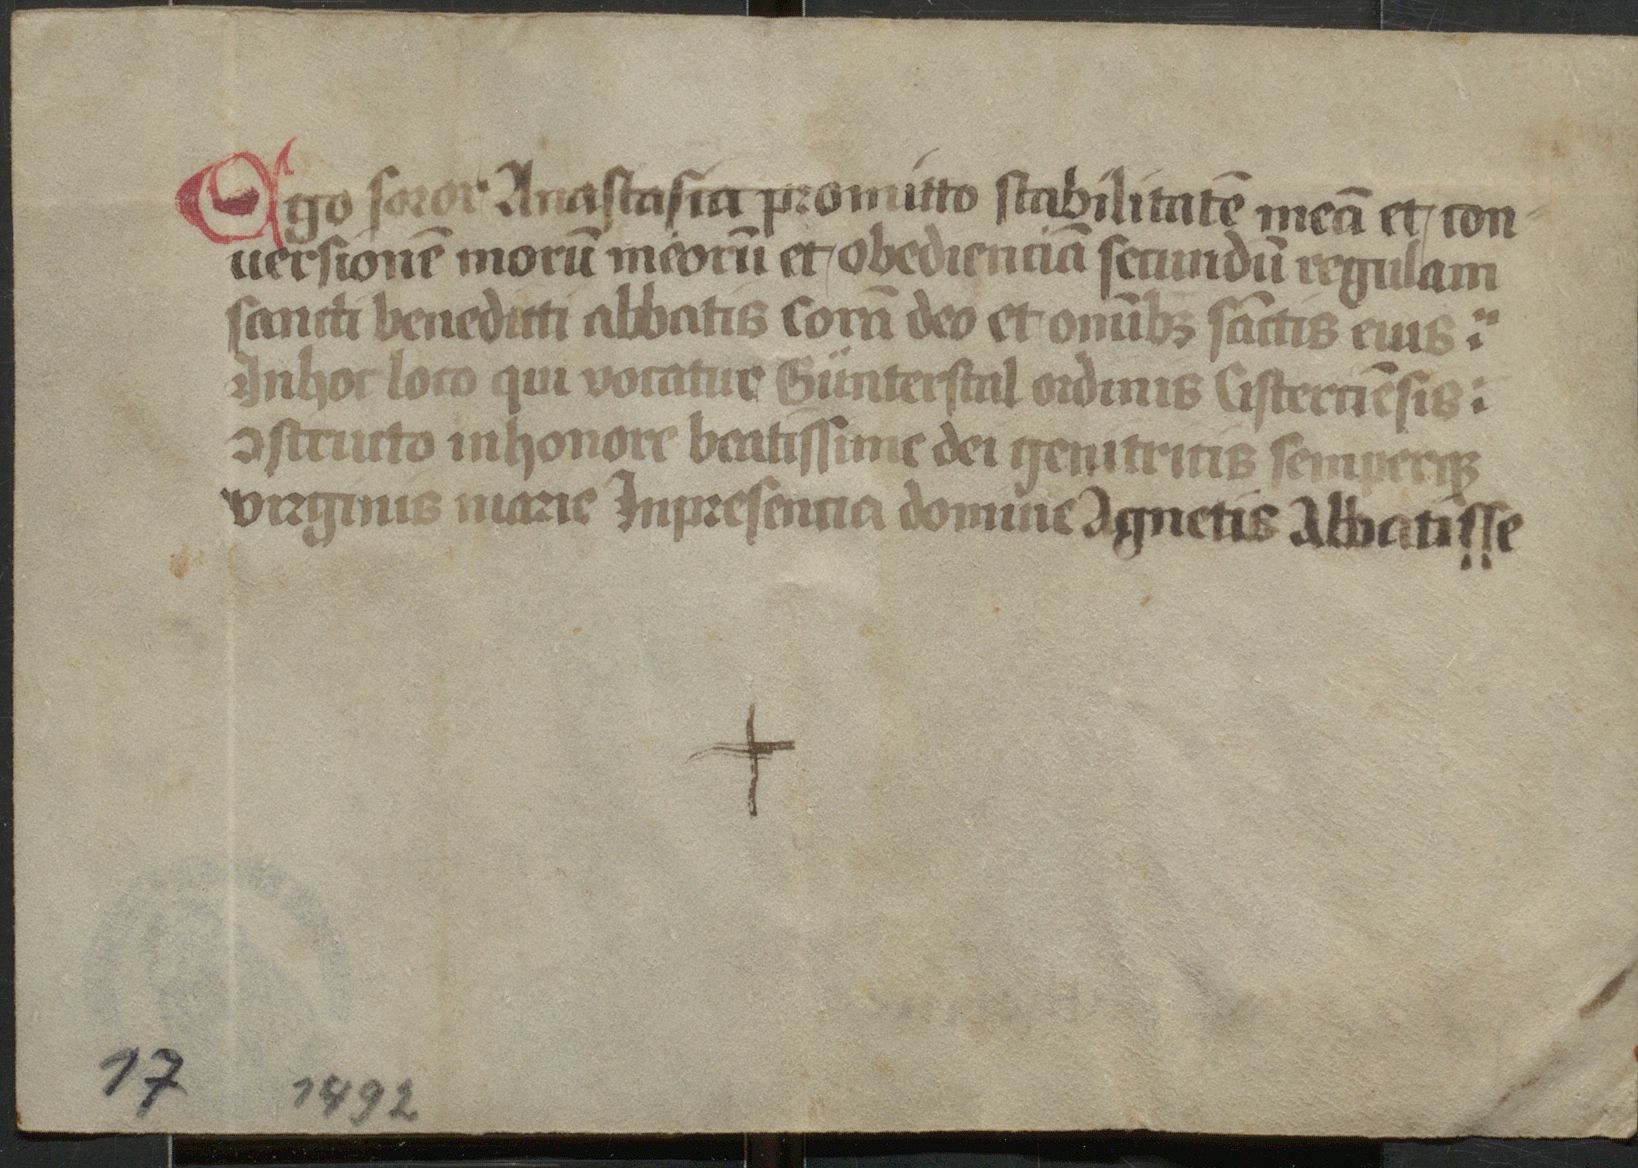 Ego soror Anastasia promitto stabilitatē meā et con-
uersionē morū meorū et obedienciā secundū regulam
sancti benedicti abbatis corā deo et omībꝫ sāctis eius :
In hoc loco qui vocatur Günterstal ordinis Cisterciēsis :
ꝯstructo in honore beatissime dei genitricis semperqꝫ
virginis marie In presencia domine Agnetis Abbatisse
17 1492